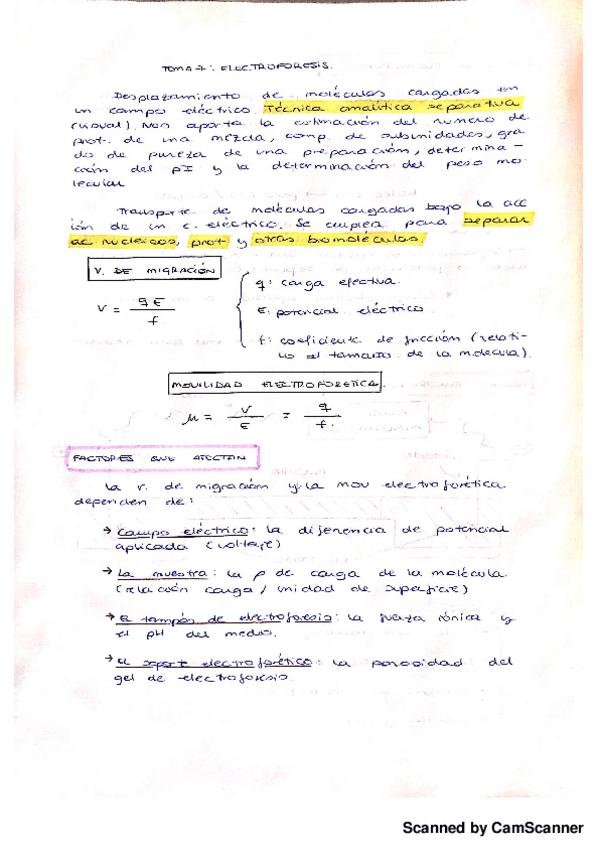 TEMA 7: ELECTROFORESIS.
Desplazamiento de moléculas cargadas en
un campo eléctrico. Técnica analítica separativa
(visual). Nos aporta la estimación del número de
prot. de una mezcla, comp. de subunidades, gra
do de pureza de una preparación, determina-
ción del pI y la determinación del peso mo
lecular
Transporte de moléculas cargadas bajo la acc
ión de un c. eléctrico. Se emplea para separar
ac nucleicos, prot y otras biomoléculas.
V. DE MIGRACIÓN
V = qE / f
q: carga efectiva.
E: potencial eléctrico.
f: coeficiente de fricción (relati-
vo al tamaño de la molécula).
MOVILIDAD ELECTROFORÉTICA.
μ = V / E = q / f.
FACTORES QUE AFECTAN
La v. de migración y la mov electroforética
dependen de:
→ Campo eléctrico: la diferencia de potencial
aplicada (voltaje)
→ La muestra: la ρ de carga de la molécula.
(relación carga / unidad de superficie)
→ El tampón de electroforesis: la fuerza iónica y
el pH del medio.
→ El soporte electroforético: la porosidad del
gel de electroforesis.
Scanned by CamScanner